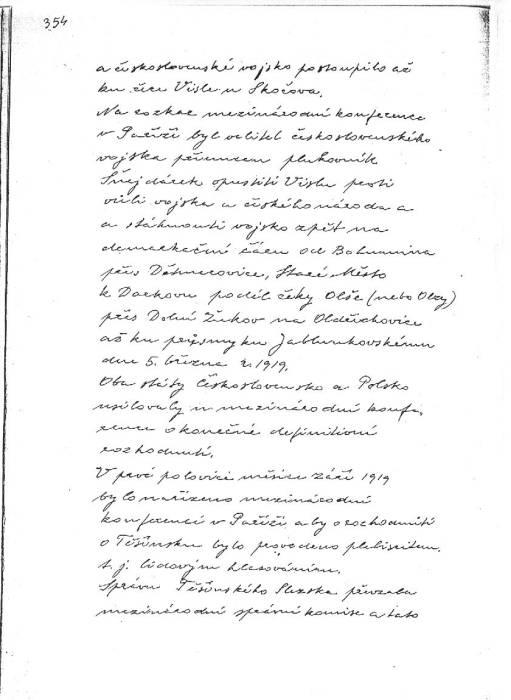 354
a československé vojsko postoupilo až
ku řece Visle u Skočova.
Na rozkaz mezinárodní konference
v Paříži byl velitel československého
vojska přinucen plukovník
Šnejdárek opustiti Vislu proti
vůli vojska a českého národa a
a stáhnouti vojsko zpět na
demarkační čáru od Bohumína
přes Dětmarovice, Staré Město
k Darkovu podél řeky Olše (nebo Olzy)
přes Dolní Žukov na Oldřichovice
až ku průsmyku Jablunkovskému
dne 5. března r. 1919.
Oba státy Československo a Polsko
usilovaly u mezinárodní konfe,
rence o konečné definitivní
rozhodnutí.
V prvé polovici měsíce září 1919
bylo nařízeno mezinárodní
konferencí v Paříži aby o rozhodnutí
o Těšínsku bylo provedeno plebiscitem.
t. j. lidovým hlasováním.
Správu Těšínského Slezska převzala
mezinárodní správní komise a tato